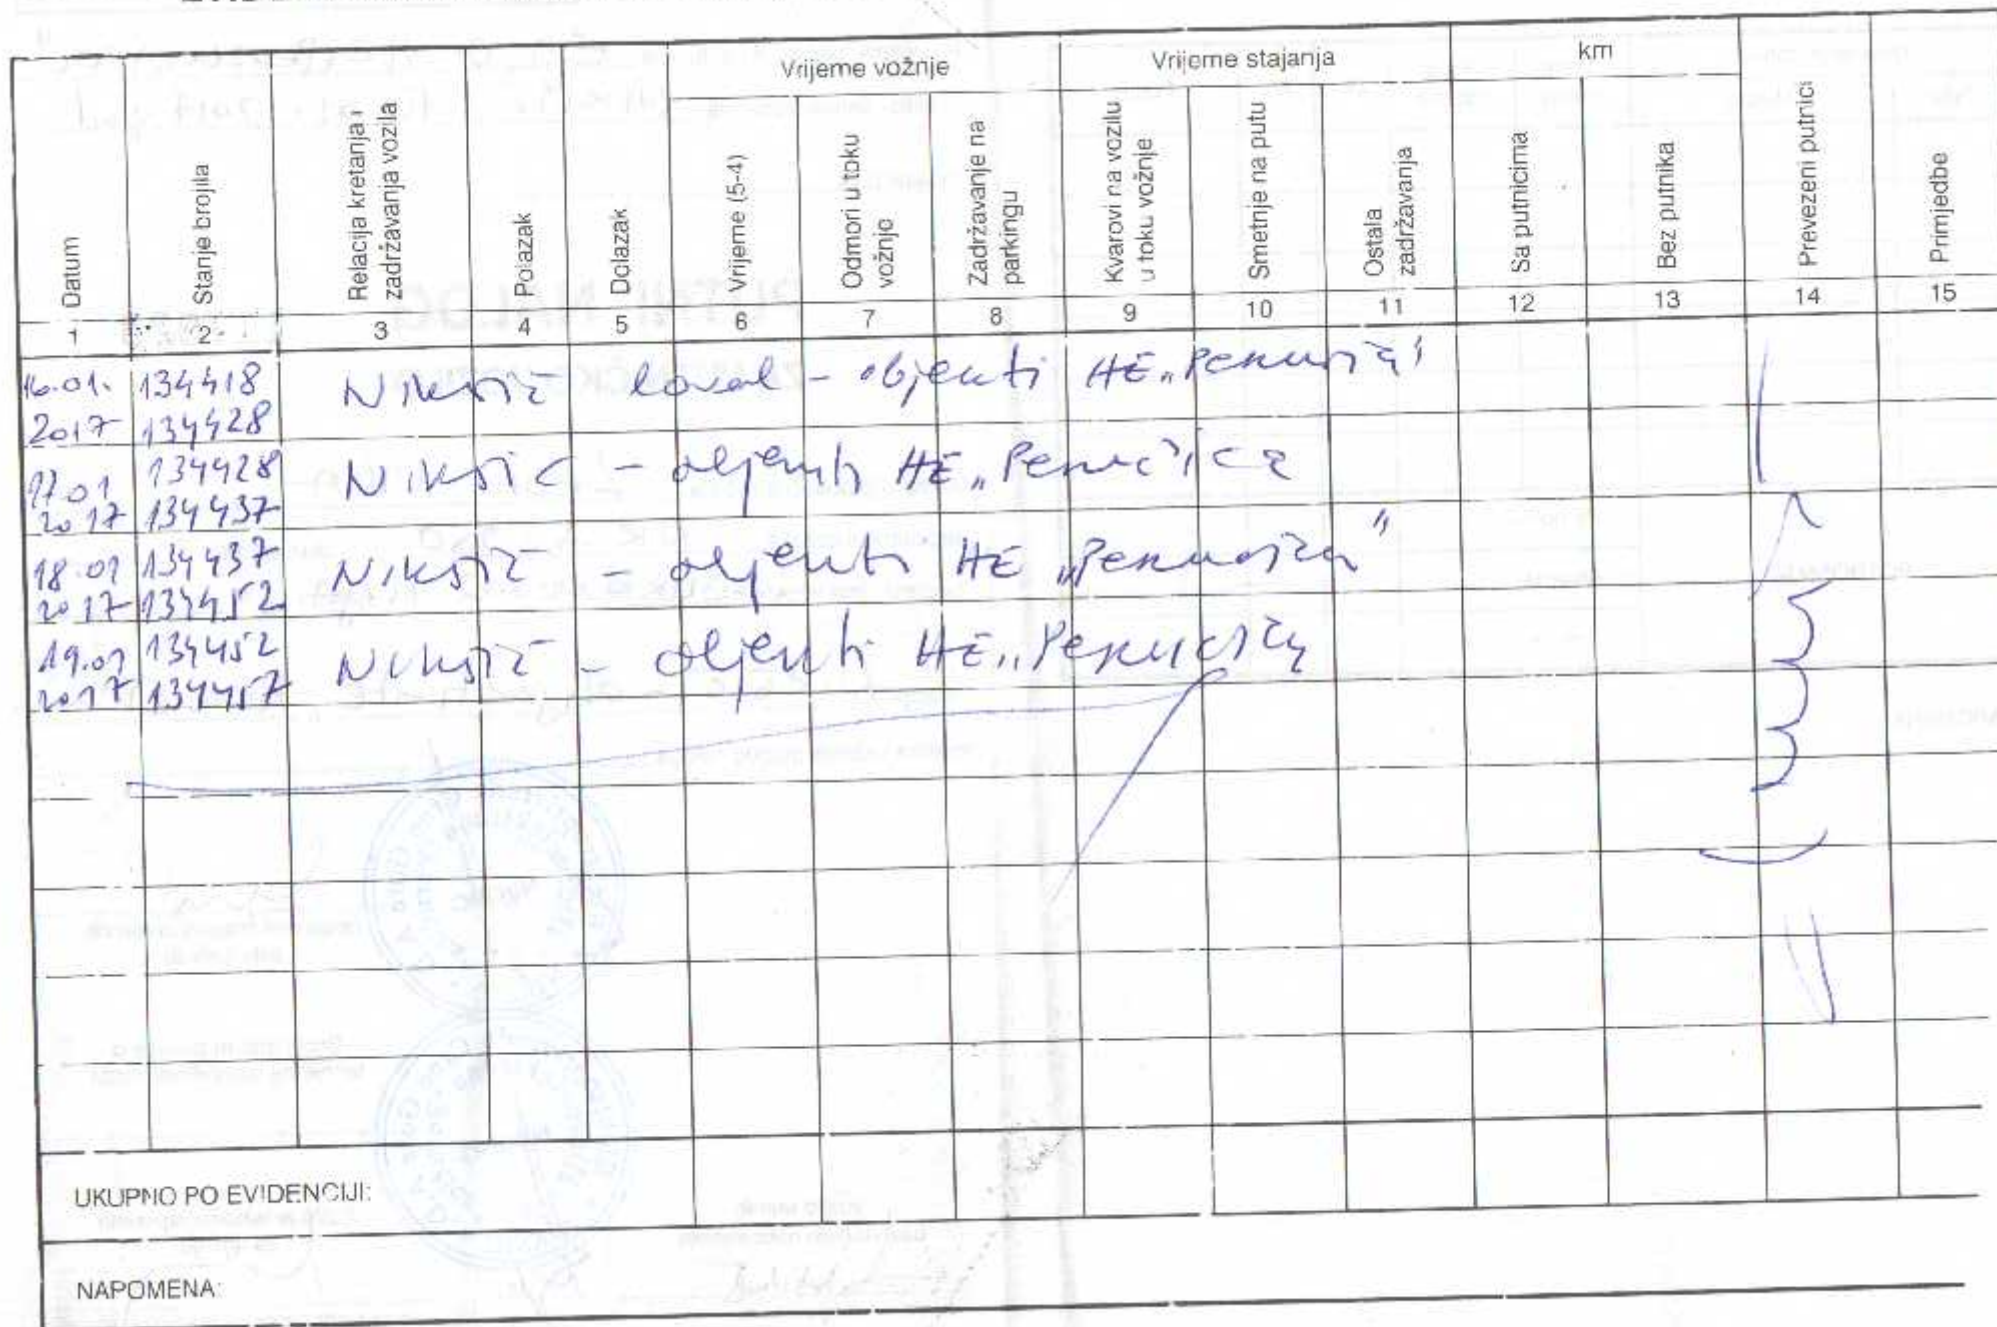 Vrijeme vožnje Vrijeme stajanja km
Datum
Stanje brojila
Relacija kretanja i zadržavanja vozila
Polazak
Dolazak
Vrijeme (5-4)
Odmori u toku vožnje
Zadržavanje na parkingu
Kvarovi na vozilu u toku vožnje
Smetnje na putu
Ostala zadržavanja
Sa putnicima
Bez putnika
Prevezeni putnici
Primjedbe
1 2 3 4 5 6 7 8 9 10 11 12 13 14 15
16.01. 134418 Nikšić lokal - objekti HE „Perućica"
2017 134428
17.01 134428 Nikšić - objekti HE „Perućica
2017 134437
18.01 134437 Nikšić - objekti HE „Perućica"
2017 134452
19.01 134452 Nikšić - objekti HE „Perućica
2017 134457
UKUPNO PO EVIDENCIJI:
NAPOMENA: